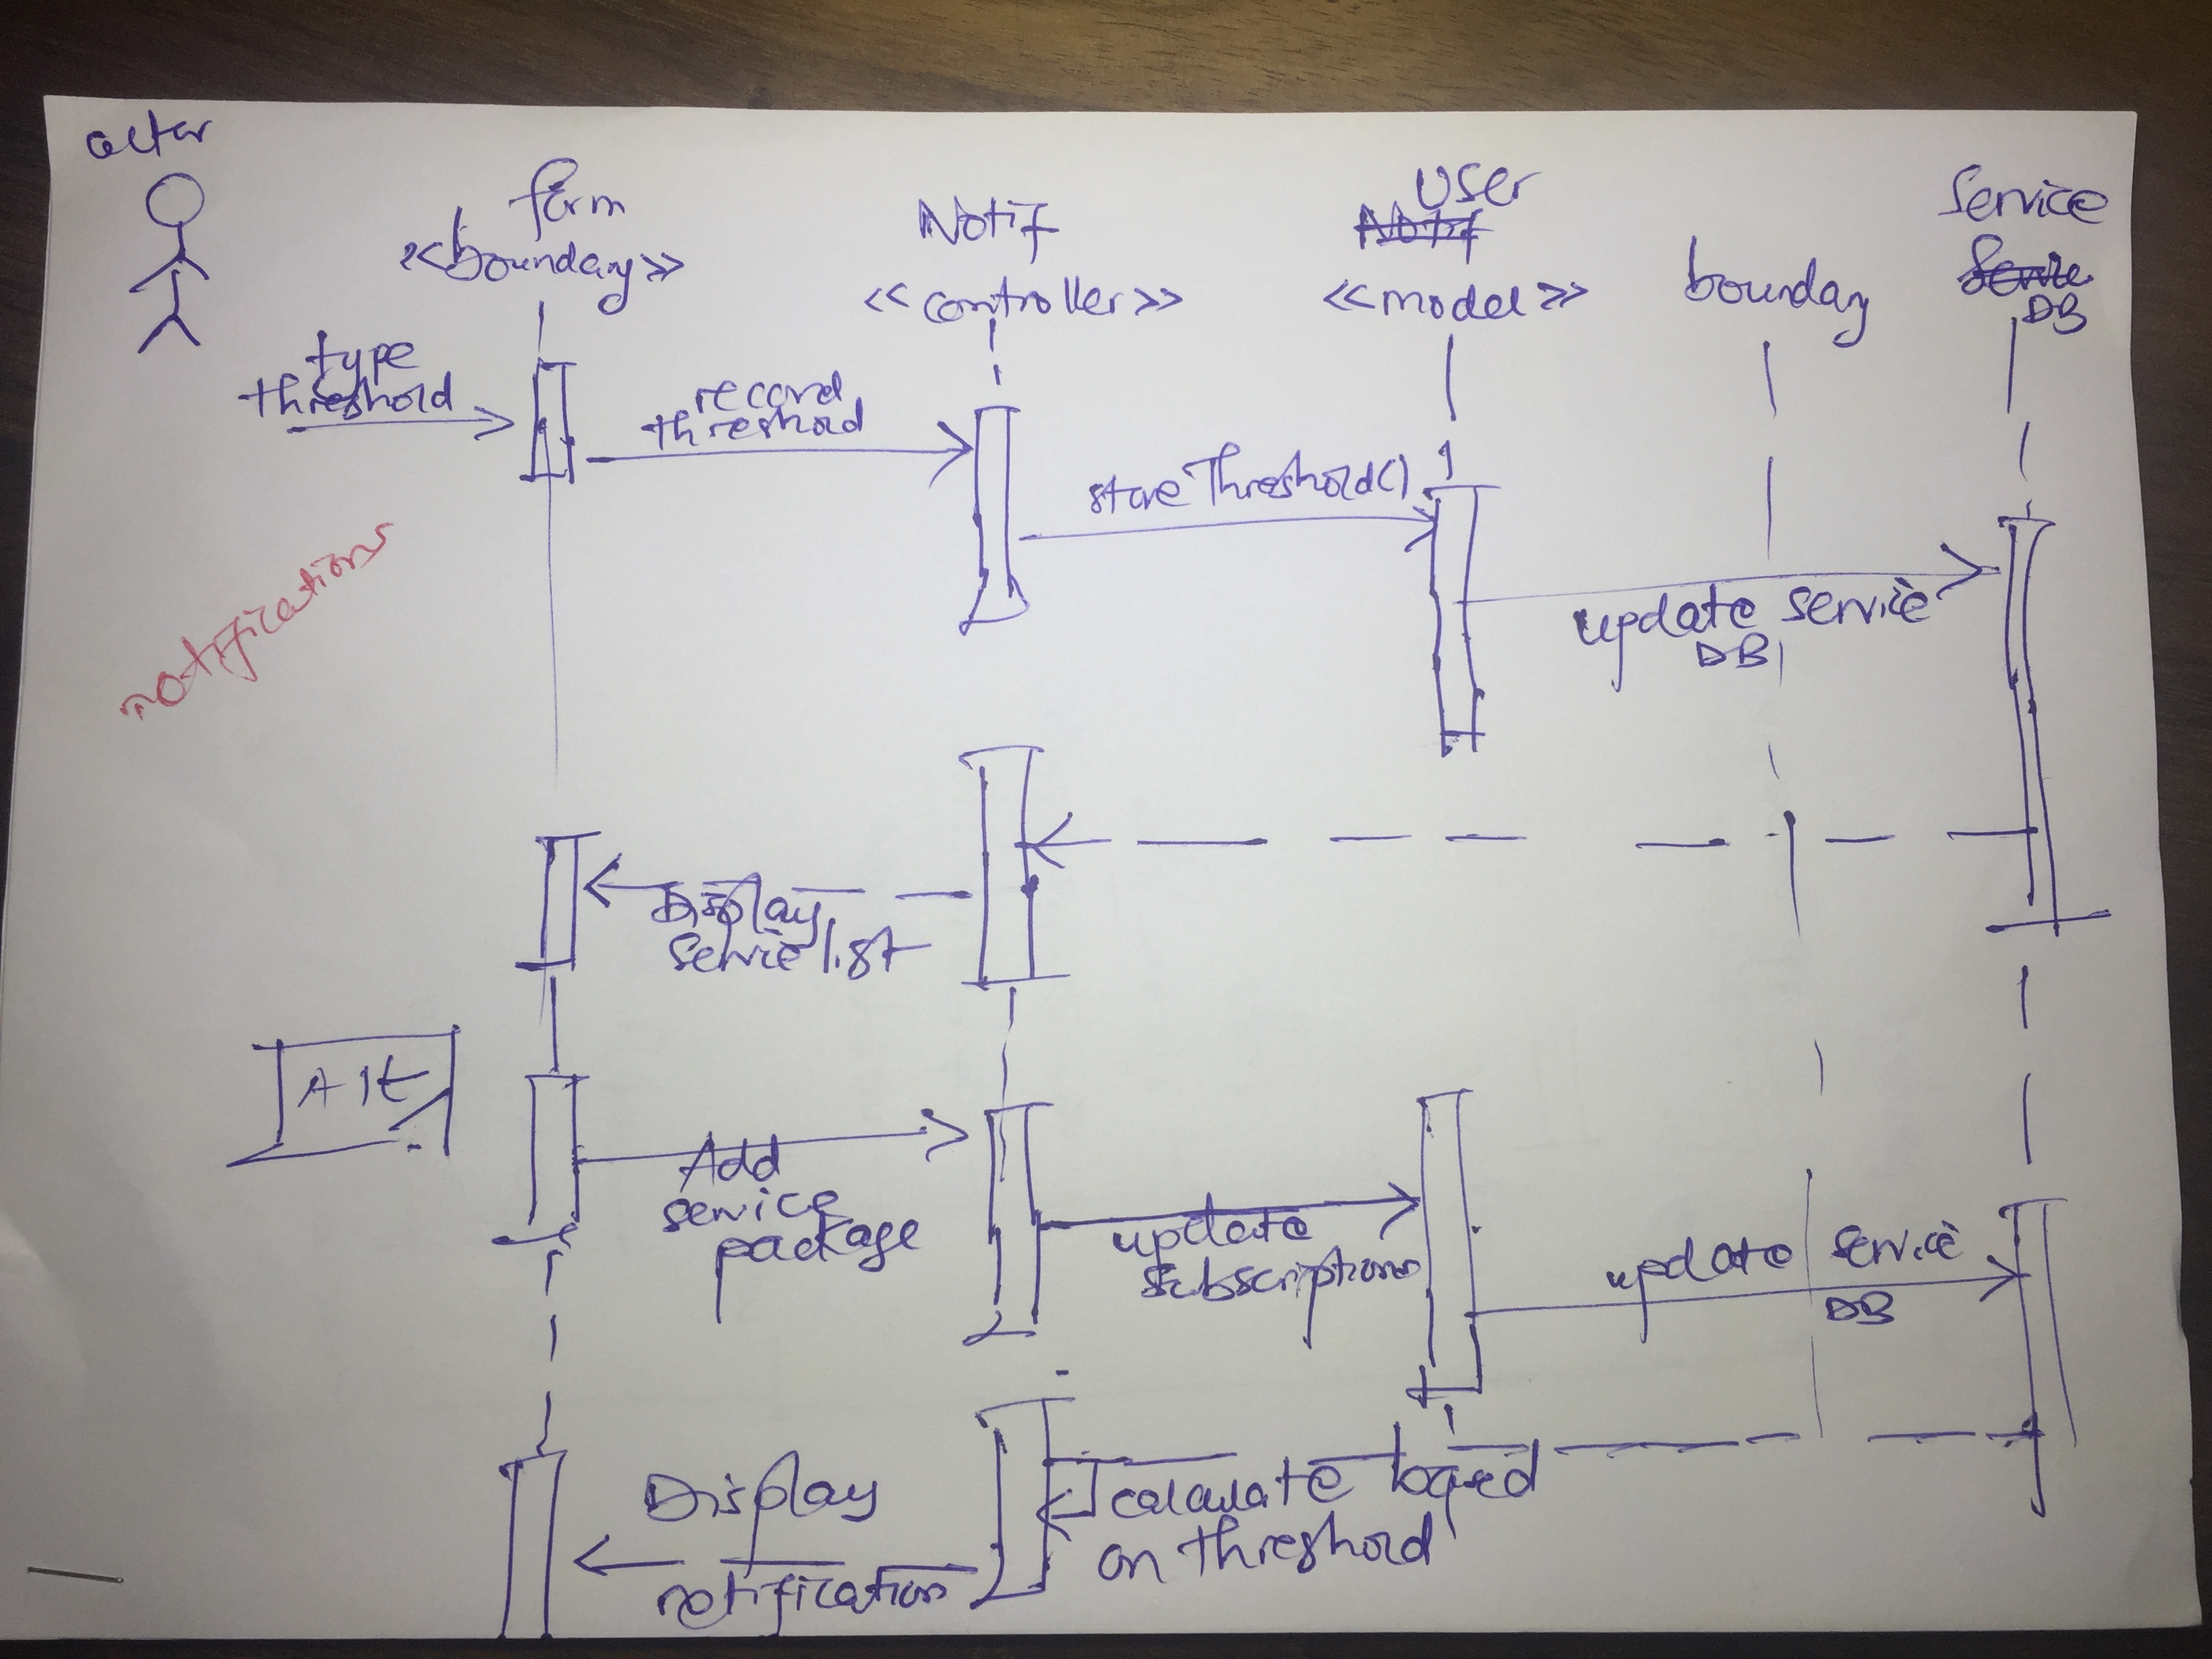 actor
form
<<boundary>>
Notf
<<controller>>
User
<<model>>
bounday
Service
DB
type
threshold
record
threshold
store Threshold()
update service
DB
notifications
Display
Service list
Alt
Add
service
package
update
subscription
update service
DB
calculate based
on threshold
Display
notification